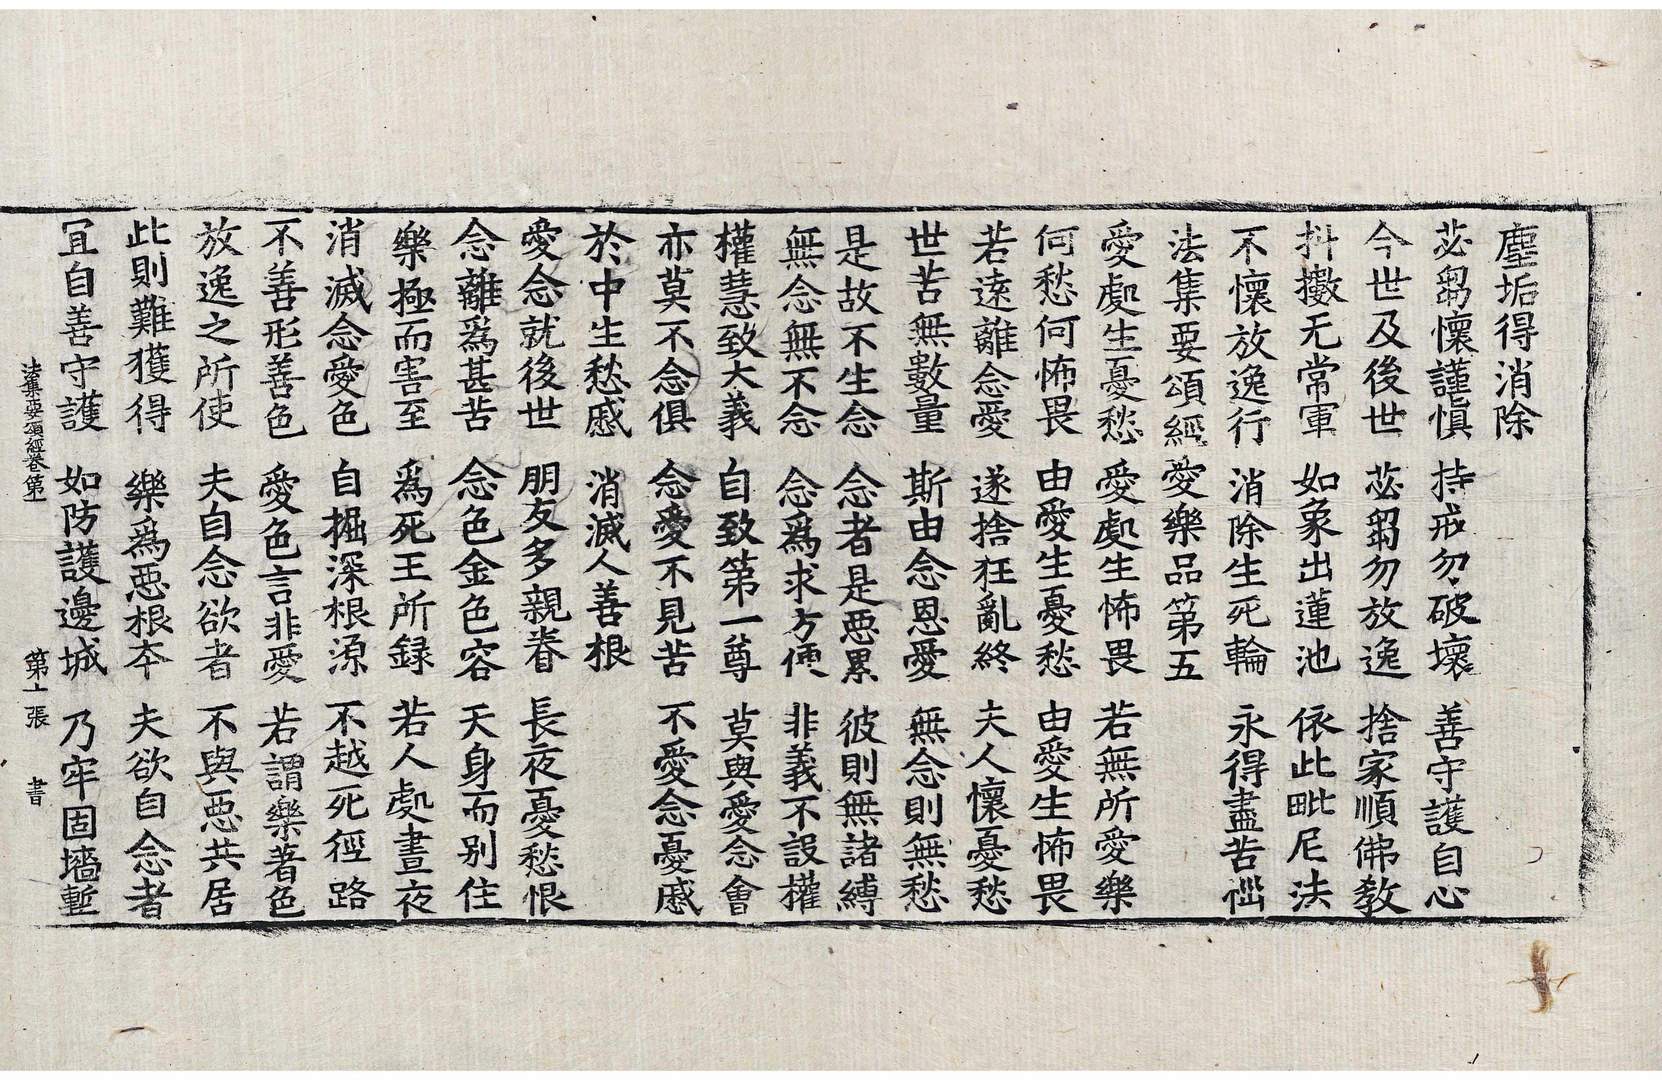 塵垢得消除
苾芻懷謹慎 持戒勿破壞 善守護自心
今世及後世 苾芻勿放逸 捨家順佛敎
抖擻无常軍 如象出蓮池 依此毗尼法
不懷放逸行 消除生死輪 永得盡苦惱
法集要頌經愛樂品第五
愛處生憂愁 愛處生怖畏 若無所愛樂
何愁何怖畏 由愛生憂愁 由愛生怖畏
若遠離念愛 遂捨狂亂終 夫人懷憂愁
世苦無數量 斯由念恩愛 無念則無愁
是故不生念 念者是惡累 彼則無諸縛
無念無不念 念爲求方便 非義不設權
權慧致大義 自致第一尊 莫與愛念會
亦莫不念俱 念愛不見苦 不愛念憂慼
於中生愁慼 消滅人善根
愛念就後世 朋友多親眷 長夜憂愁恨
念離爲甚苦 念色金色容 天身而別住
樂極而害至 爲死王所録 若人處晝夜
消滅念愛色 自掘深根源 不越死徑路
不善形善色 愛色言非愛 若謂樂著色
放逸之所使 夫自念欲者 不與惡共居
此則難獲得 樂爲惡根夲 夫欲自念者
冝自善守護 如防護邊城 乃牢固墻塹
法集要頌經卷第一 第十張 書